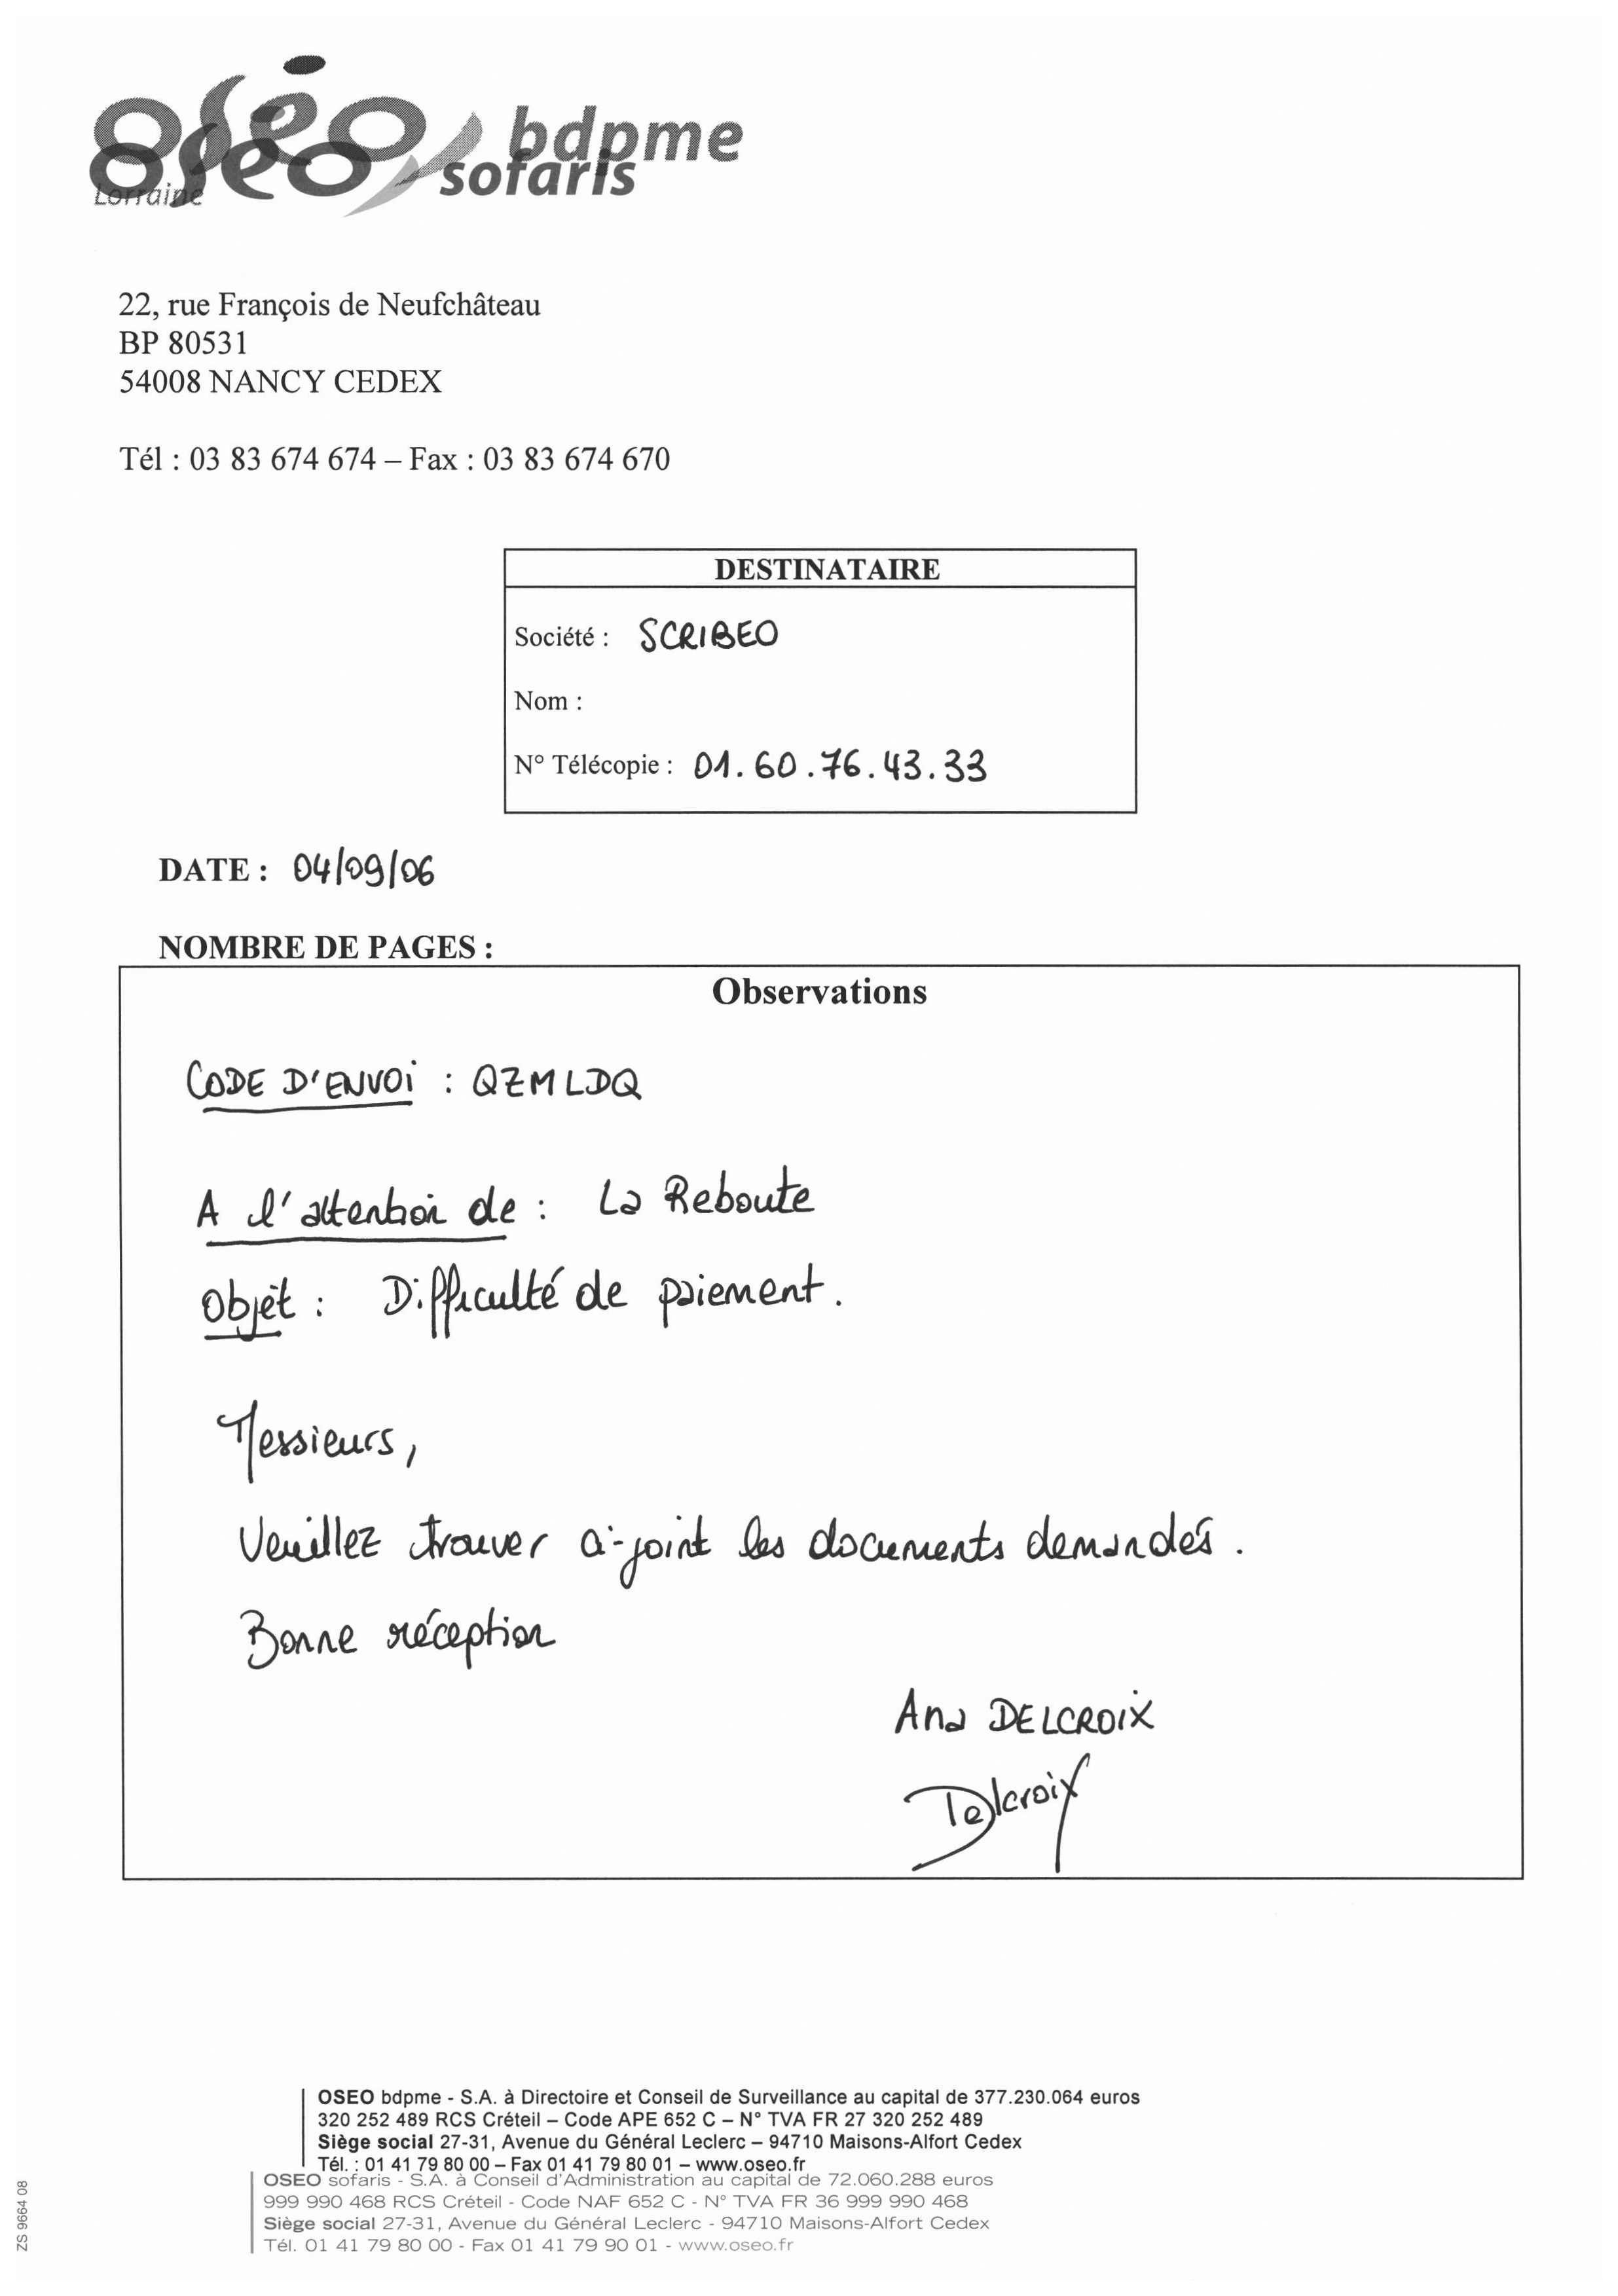 oséo bdpme
oséo sofaris
Lorraine
22, rue François de Neufchâteau
BP 80531
54008 NANCY CEDEX
Tél : 03 83 674 674 – Fax : 03 83 674 670
DESTINATAIRE
Société : SCRIBEO
Nom :
N° Télécopie : 01.60.76.43.33
DATE : 04/09/06
NOMBRE DE PAGES :
Observations
CODE D'ENVOI : QZMLDQ
A l'attention de : La Reboute
Objet : Difficulté de paiement.
Messieurs,
Veuillez trouver ci-joint les documents demandés.
Bonne réception
Ana DELCROIX
Delcroix
OSEO bdpme - S.A. à Directoire et Conseil de Surveillance au capital de 377.230.064 euros
320 252 489 RCS Créteil – Code APE 652 C – N° TVA FR 27 320 252 489
Siège social 27-31, Avenue du Général Leclerc – 94710 Maisons-Alfort Cedex
Tél. : 01 41 79 80 00 – Fax 01 41 79 80 01 – www.oseo.fr
OSEO sofaris - S.A. à Conseil d'Administration au capital de 72.060.288 euros
999 990 468 RCS Créteil - Code NAF 652 C - N° TVA FR 36 999 990 468
Siège social 27-31, Avenue du Général Leclerc - 94710 Maisons-Alfort Cedex
Tél. 01 41 79 80 00 - Fax 01 41 79 90 01 - www.oseo.fr
ZS 9664 08